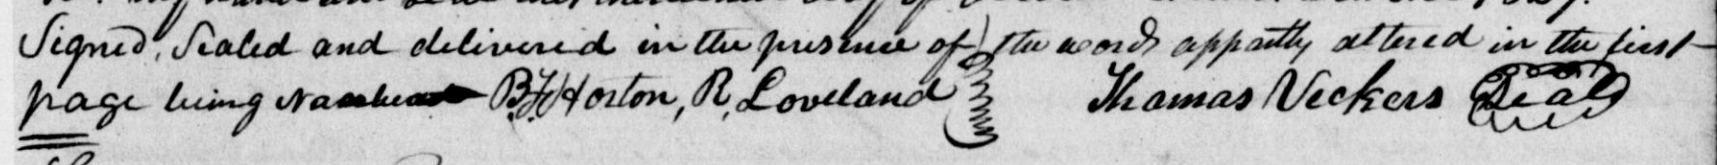 Signed, Sealed and delivered in the presence of the words appartly altered in the first
page being B. F. Horton, R. Loveland Thomas Vickers Seal